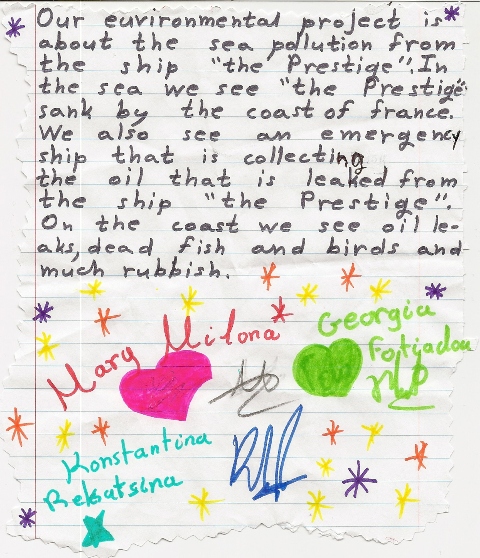 Our euvironmental project is
about the sea polution from
the ship "the Prestige".In
the sea we see "the Prestige"
sank by the coast of france.
We also see an emergency
ship that is collecting
the oil that is leaked from
the ship "the Prestige".
On the coast we see oil le-
aks,dead fish and birds and
much rubbish.
Mary Milona
Georgia
Fotijadou
Konstantina